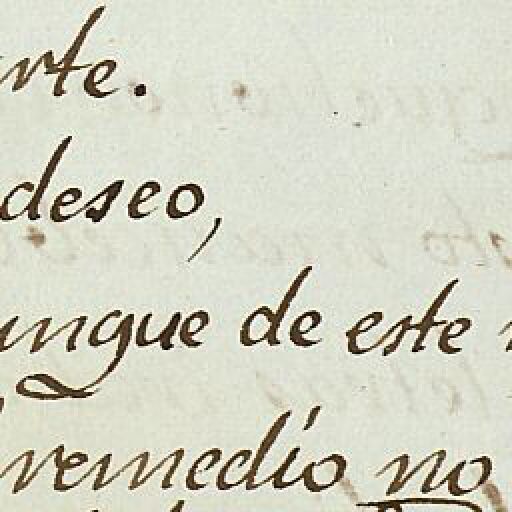 rte.
deseo,
unque de este
remedio no